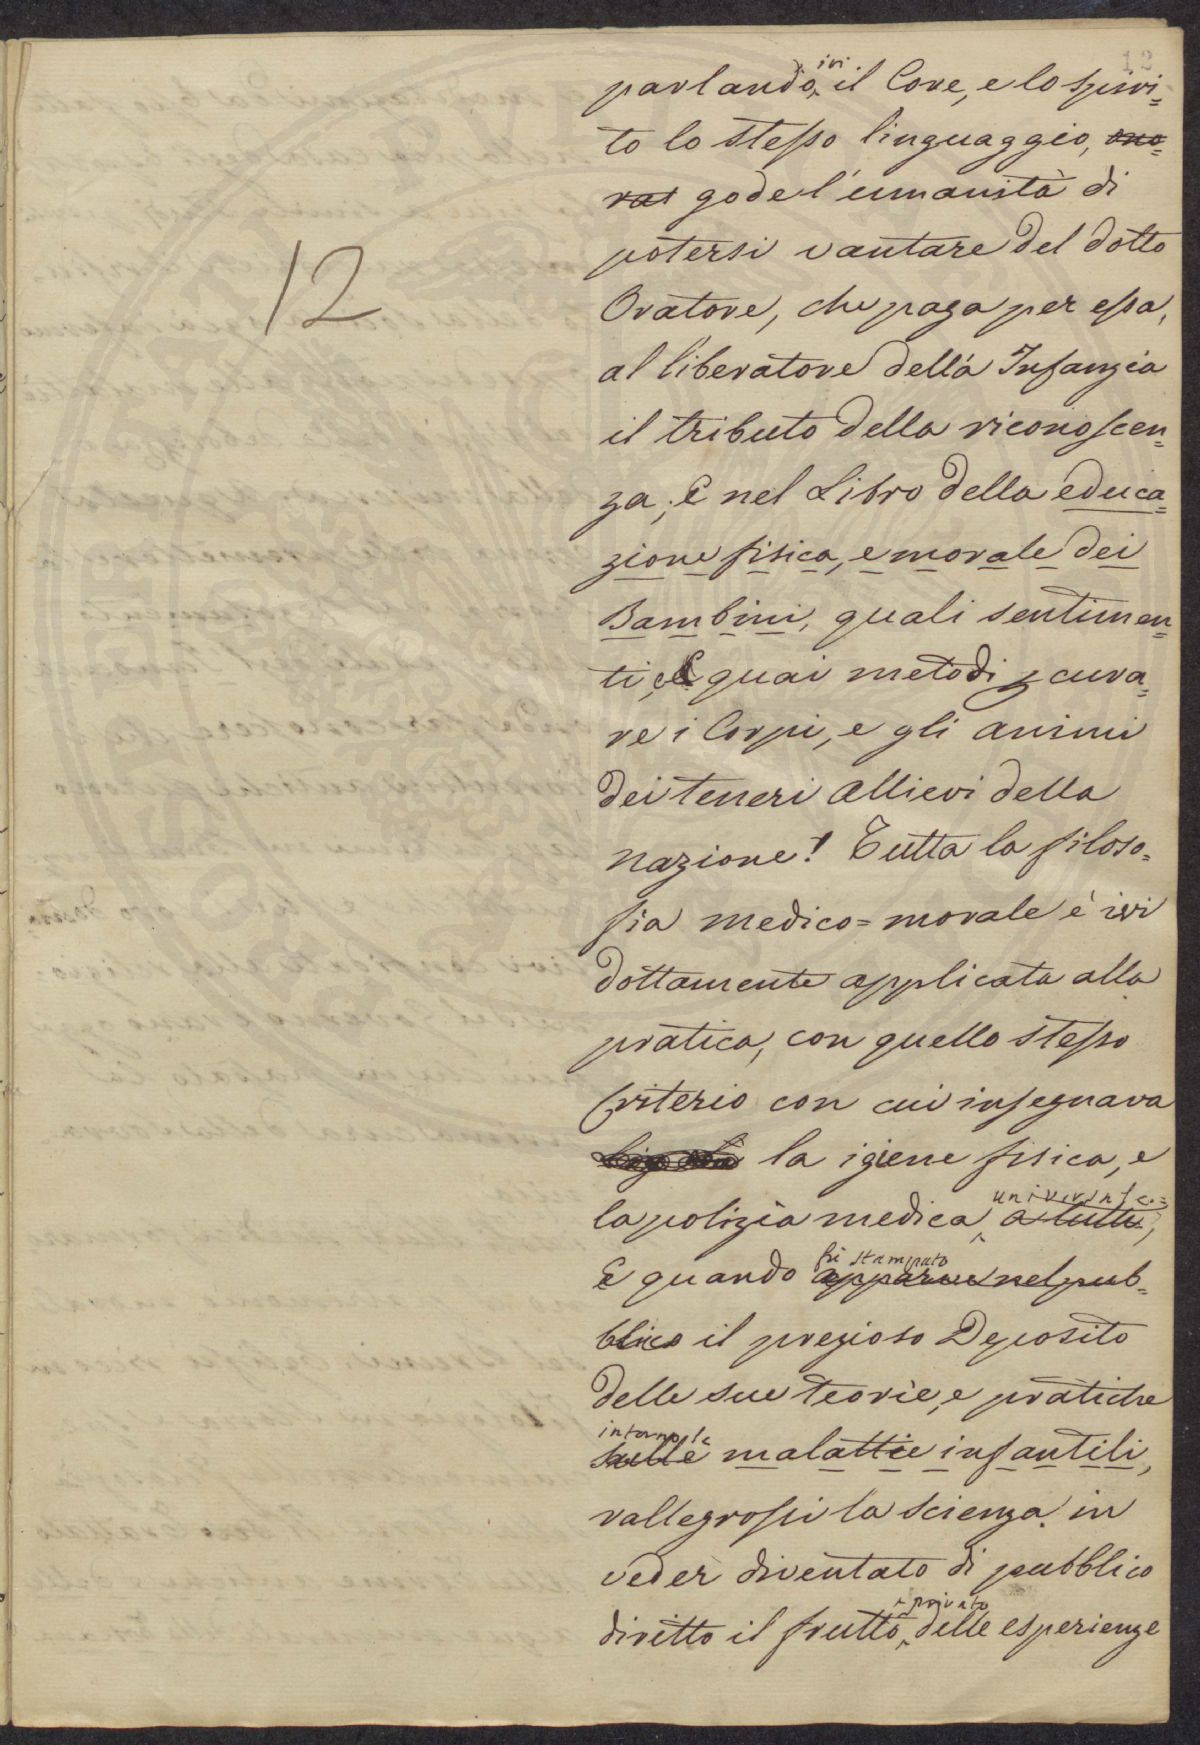 12
12
parlando, ivi il Core, e lo spiri=
to lo stesso linguaggio, ono=
rat gode l'umanità di
potersi vantare del dotto
Oratore, che paga per essa,
al liberatore della Infanzia
il tributo della riconoscen=
za; E nel Libro della educa=
zione fisica, e morale dei
Bambini, quali sentimen=
ti, e quai metodi p cura=
re i Corpi, e gli animi
dei teneri Allievi della
nazione! Tutta la filoso=
fia medico=morale è ivi
dottamente applicata alla
pratica, con quello stesso
Criterio con cui insegnava
la igiene fisica, e
la polizia medica, a tutti,
E quando fù stampato apparve nel pub=
blico il prezioso Deposito
delle sue teorie, e pratiche
intorno le sulle malattie infantili,
rallegrossi la scienza in
veder diventato di pubblico
diritto il frutto, e privato delle esperienze